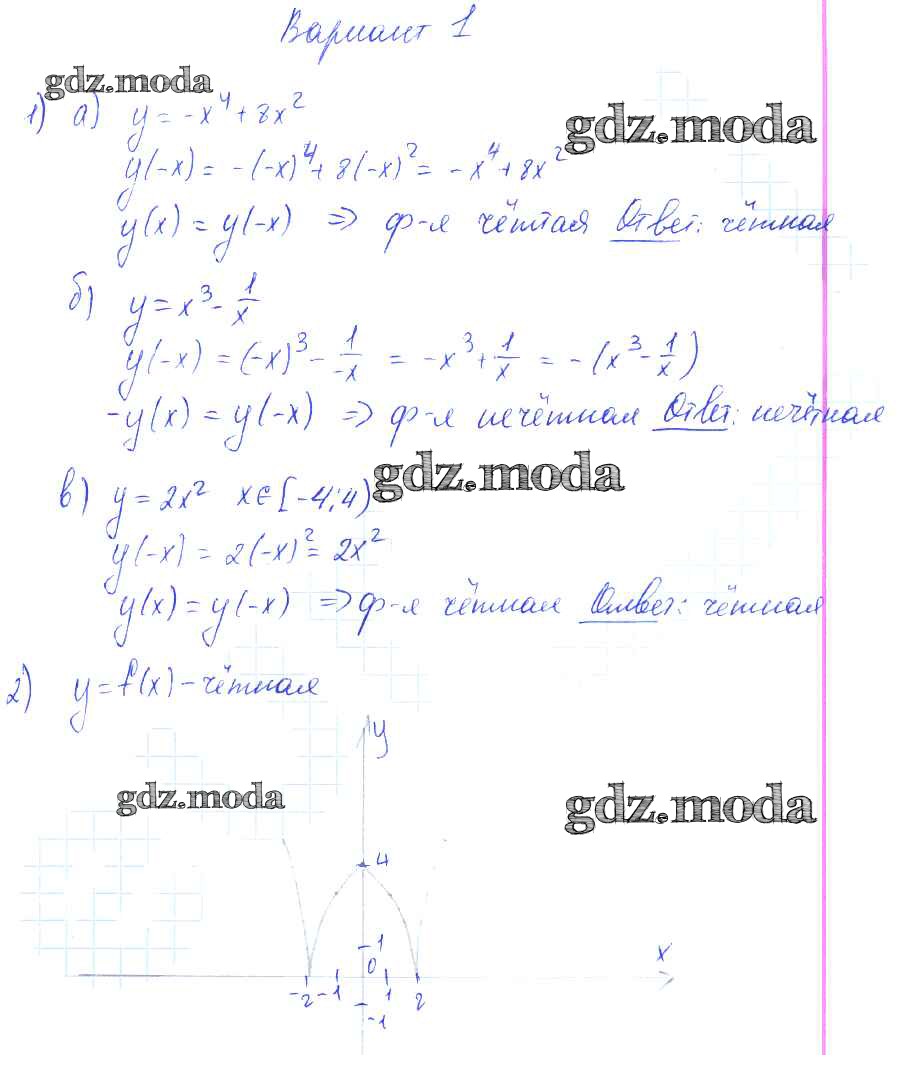 Вариант 1
gdz.moda
1) а) y = -x⁴ + 8x²
gdz.moda
y(-x) = -(-x)⁴ + 8(-x)² = -x⁴ + 8x²
y(x) = y(-x) => ф-я чётная Ответ: чётная
б) y = x³ - 1/x
y(-x) = (-x)³ - 1/-x = -x³ + 1/x = -(x³ - 1/x)
-y(x) = y(-x) => ф-я нечётная Ответ: нечётная
в) y = 2x² x∈[-4;4)
gdz.moda
y(-x) = 2(-x)² = 2x²
y(x) = y(-x) => ф-я чётная Ответ: чётная
2) y = f(x) - чётная
y
gdz.moda
gdz.moda
4
1
x
0
-2 -1 1 2
-1